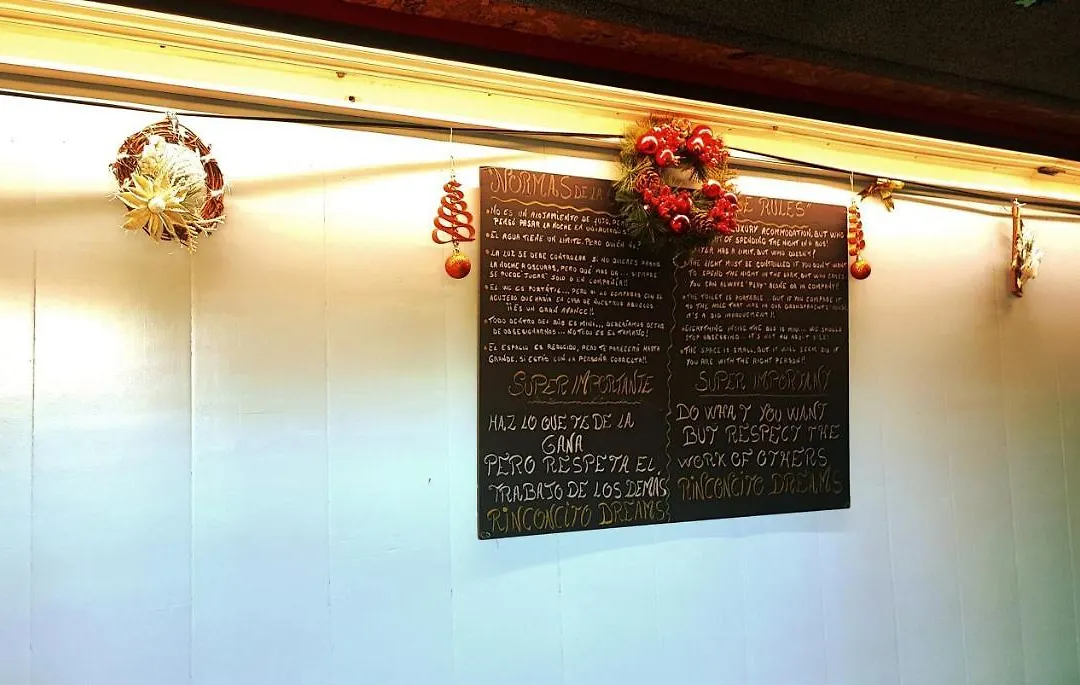 "NORMAS DE LA
NO ES UN ALOJAMIENTO DE LUJO,
PERO PASAR LA NOCHE EN
EL AGUA TIENE UN LIMITE, PERO QUIÉN NO?
LA LUZ SE DEBE CONTROLAR SI NO QUIERES PASAR
LA NOCHE A OSCURAS, PERO QUE MAS DA... SIEMPRE
SE PUEDE "JUGAR" SOLO O EN COMPAÑIA!!
EL WC ES PORTÁTIL... PERO SI LO COMPARAS CON EL
AGUJERO QUE HABÍA EN CASA DE NUESTROS ABUELOS
¡¡ES UN GRAN AVANCE!!
TODO DENTRO DEL BUS ES MINI... DEBERÍAMOS DEJAR
DE OBSESIONARNOS... NO TODO ES EL TAMAÑO!
EL ESPACIO ES REDUCIDO, PERO TE PARECERÁ HASTA
GRANDE, SI ESTÁS CON LA PERSONA CORRECTA!!
SUPER IMPORTANTE
HAZ LO QUE TE DE LA
GANA
PERO RESPETA EL
TRABAJO DE LOS DEMÁS
RINCONCITO DREAMS
RULES"
LUXURY ACOMMODATION, BUT WHO
OF SPENDING THE NIGHT IN A BUS!
WATER HAS A LIMIT, BUT WHO DOESN'T?
THE LIGHT MUST BE CONTROLLED IF YOU DON'T WANT
TO SPEND THE NIGHT IN THE DARK, BUT WHO CARES
YOU CAN ALWAYS "PLAY" ALONE OR IN COMPANY!!
THE TOILET IS PORTABLE... BUT IF YOU COMPARE IT
TO THE HOLE THAT WAS IN OUR GRANDPARENTS' HOUSE
IT'S A BIG IMPROVEMENT!!
EVERYTHING INSIDE THE BUS IS MINI... WE SHOULD
STOP OBSESSING... IT'S NOT ALL ABOUT SIZE!
THE SPACE IS SMALL, BUT IT WILL SEEM BIG IF
YOU ARE WITH THE RIGHT PERSON!!
SUPER IMPORTANT
DO WHAT YOU WANT
BUT RESPECT THE
WORK OF OTHERS
RINCONCITO DREAMS